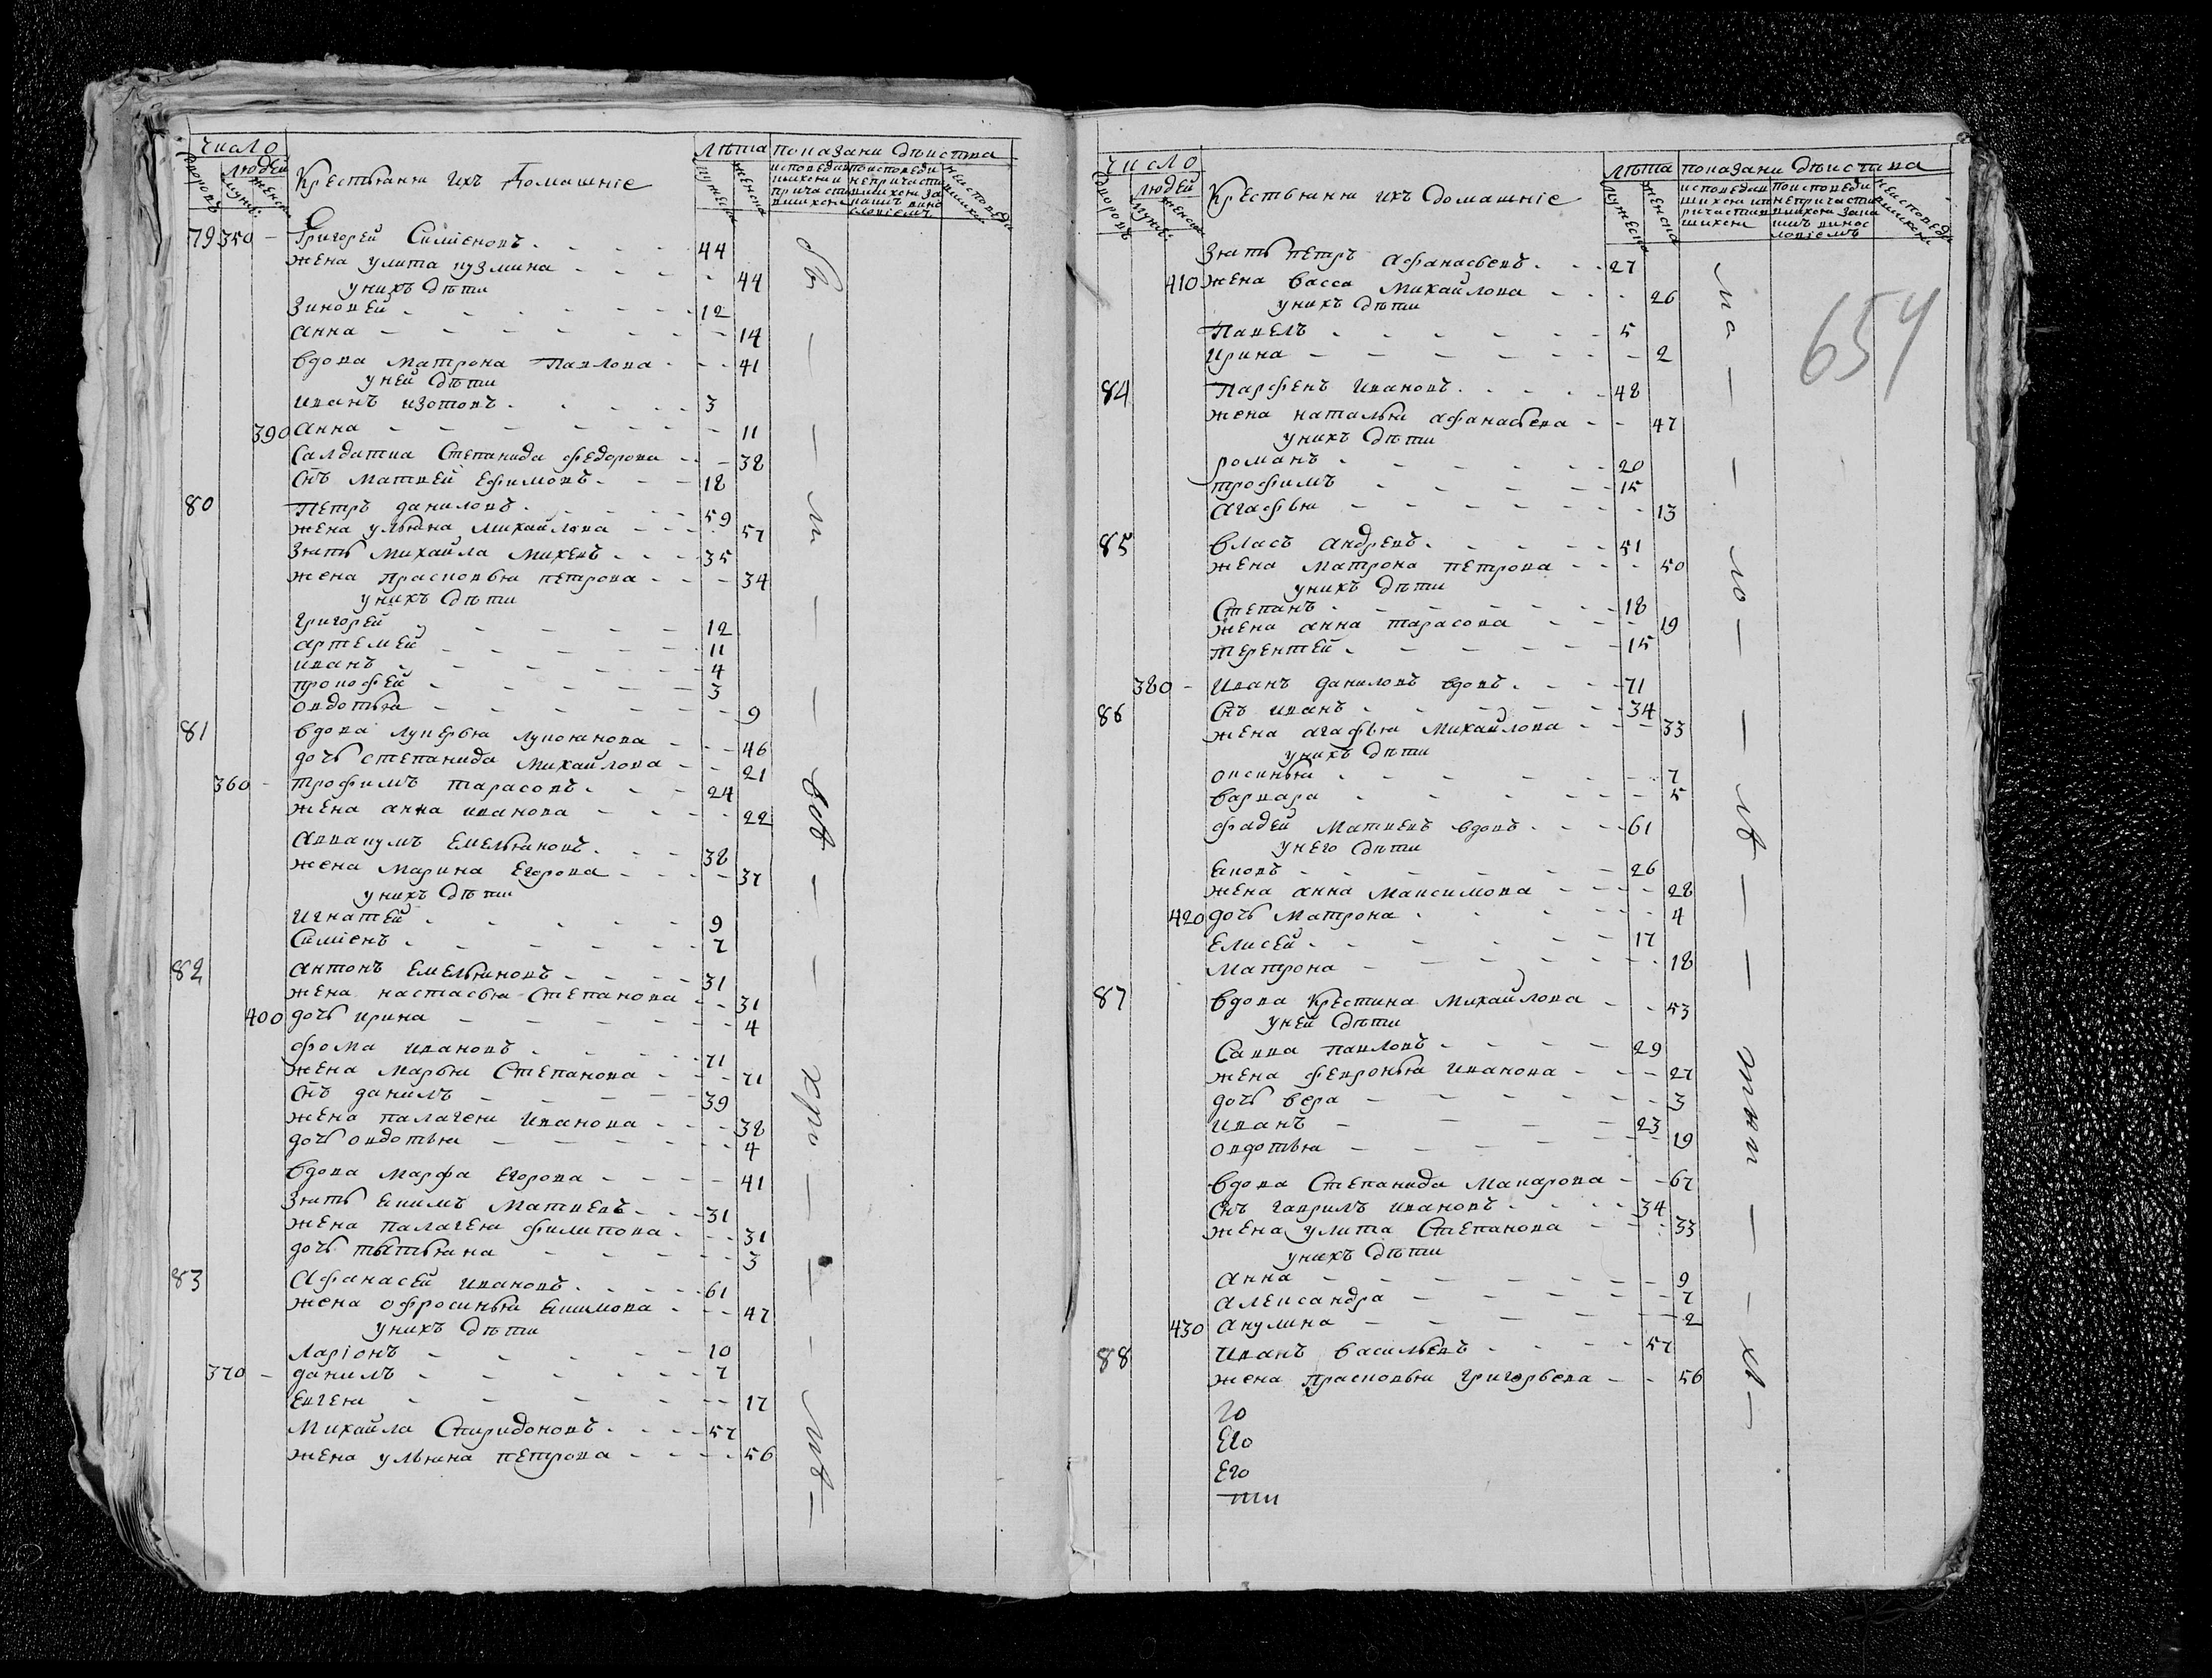 число
людей
дворовъ
мужес:
женска
Крестьяня ихъ домашніе
лѣта
мужеска
женска
показани дѣиства
79 350 - Григорей Симіеновъ 44
жена улита кузмина 44
у нихъ дѣти
Зиновей 12
Анна 14
вдова матрона Павлова 41
у ней дѣти
иванъ изотовъ 3
390 Анна 11
Салдатка Степанида федорова 38
Снъ матвей Ефимовъ 18
80 Петръ даниловъ 59
жена ульяна михайлова 57
Зять михайла михеевъ 35
жена прасковья петрова 34
у нихъ дѣти
григорей 12
артемей 11
иванъ 4
прокофей 3
овдотья 9
81 вдова лукерья лукоянова 46
дочь степанида михайлова 21
360 - трофимъ тарасовъ 24
жена анна иванова 22
Аввакумъ Емельяновъ 38
жена марина Егорова 37
у нихъ дѣти
Игнатей 9
Симіенъ 7
82 антонъ Емельяновъ 31
жена настасья Степанова 31
400 дочь ирина 4
фома ивановъ 71
жена марья Степанова 71
Снъ данилъ 39
жена палагея Иванова 38
дочь овдотья 4
вдова марфа Егорова 41
Зять Екимъ матвеевъ 31
жена палагея филипова 31
дочь татьяна 3
83 Афанасей ивановъ 61
жена офросинья Екимова 47
у нихъ дѣти
ларіонъ 10
370 - данилъ 7
Евгения 17
Михайла Спиридоновъ 57
жена ульяна петрова 56
число
людей
дворовъ
мужес:
женска
Крестьяня ихъ домашніе
лѣта
мужеска
женска
показани дѣиства
654
Зять петръ афанасьевъ 27
410 жена васса михайлова 26
у нихъ дѣти
Павелъ 5
Ирина 2
84 Парфенъ ивановъ 48
жена наталья афанасьева 47
у нихъ дѣти
романъ 20
трофимъ 15
агафья 13
85 власъ андревъ 51
жена матрона петрова 50
у нихъ дѣти
Степанъ 18
жена анна тарасова 19
терентей 15
380 - Иванъ даниловъ вдовъ 71
86 Снъ иванъ 34
жена агафья михайлова 33
у нихъ дѣти
оксинья 7
варвара 5
фадей матвеевъ вдовъ 61
у него дѣти
яковъ 26
жена анна максимова 28
420 дочь матрона 4
Елисей 17
матрона 18
87 вдова Крестина михайлова 53
у ней дѣти
Савва павловъ 29
жена февронья иванова 27
дочь вера 3
Иванъ 23
овдотья 19
вдова Степанида макарова 67
Снъ гаврилъ ивановъ 34
жена улита Степанова 33
у нихъ дѣти
Анна 9
александра 7
430 акулина 2
88 Иванъ васильевъ 57
жена прасковья григорьева 56
го
Его
Его
ти